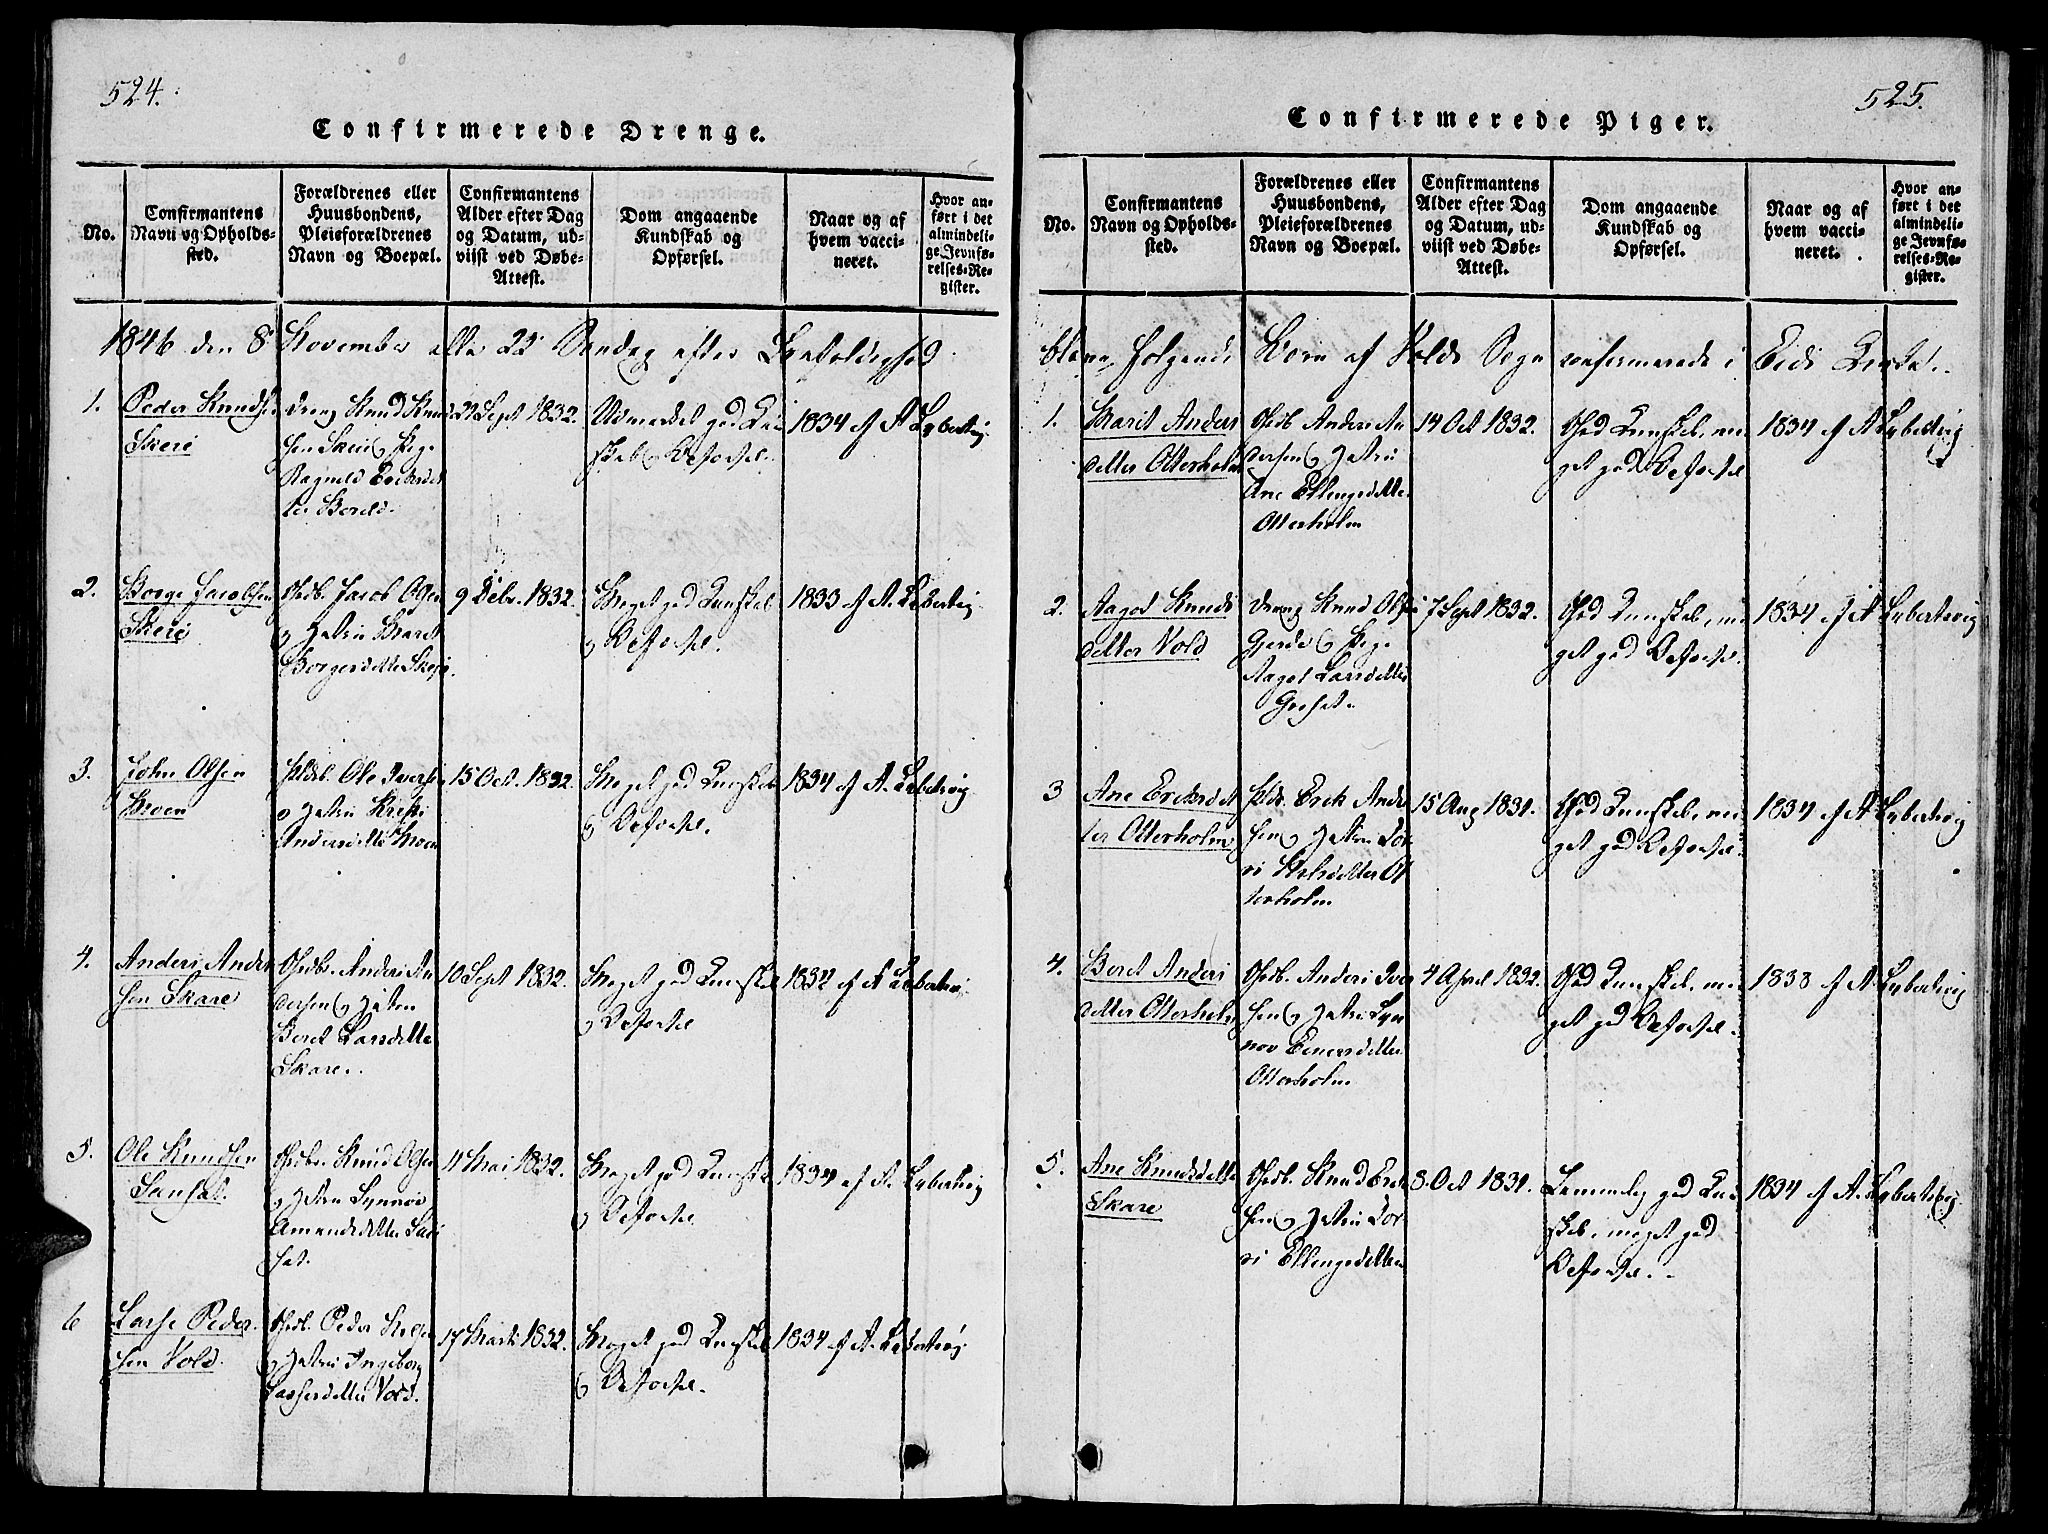 524.
Confirmerede Drenge.
No.
Confirmantens
Navn og Opholds-
sted.
Forældrenes eller
Huusbondens,
Pleieforældrenes
Navn og Boepæl.
Confirmantens
Alder efter Dag
og Datum, ud-
viist ved Døbe-
Attest.
Dom angaaende
Kundskab og
Opførsel.
Naar og af
hvem vacci-
neret.
Hvor an-
ført i det
almindeli-
ge Jevnfø-
relses-Re-
gister.
1846 den 8 November eller 22 Søndag efter Trefoldighed
1.
Peder Knudsen
Skeie
Dreng Knud Knud-
sen Skeie og Pige
Ragnild Eriksdat
ter Bored.
22 Sept 1832.
Udmærket god Kun
skab og Opførsel.
1834 af A Lybertrig.
2.
Borge Jacobsen
Skeie
Gbdb. Jacob Olsen
og Hustru Beret
Borgersdatter Skeie.
9 Febr. 1832.
Meget god Kundskab
og Opførsel.
1833 af A. Lybertrig.
3.
John Olsen
Moen
Pldb. Ole Iversen
og Hustru Kristi
Andersdatter Moen
15 Oct. 1832.
Meget god Kundskab
og Opførsel.
1834 af A. Lybertrig
4.
Anders Ander
sen Skare
Gbdb. Anders An
dersen og Hustru
Beret Larsdatter
Skare.
10 Sept 1832.
Meget god Kundskab
og Opførsel
1832 af A Lybertrig.
5.
Ole Knudsen
Sanset.
Gbdb. Knud Olsen
og Hustru Synnov
Amundsdatter San
set.
11 Mai 1832.
Meget god Kundskab
og Opførsel
1834 af A. Lybertrig
6
Lasse Peder
sen Vold.
Gbdb. Peder
og Hustru Ingeborg
Lassesdatter Vold.
17 Marts 1832.
Meget god Kundskab
og Opførsel.
1834 af A. Lybertrig.
525.
Confirmerede Piger.
No.
Confirmantens
Navn og Opholds-
sted.
Forældrenes eller
Huusbondens,
Pleieforældrenes
Navn og Boepæl.
Confirmantens
Alder efter Dag
og Datum, ud-
viist ved Døbe-
Attest.
Dom angaaende
Kundskab og
Opførsel.
Naar og af
hvem vacci-
neret.
Hvor an-
ført i det
almindeli-
ge Jevnfø-
relses-Re-
gister.
bleve følgende Børn af Volds Sogn confirmerede i Eids Kirke.
1.
Marit Anders
datter Otterholm
Gbdb. Anders An
dersen og Hustru
Ane Ellingsdatter
Otterholm
14 Oct 1832.
God Kundskab, me
get god Opførsel
1834 af A Lybertrig
2.
Aagot Knuds
datter Vold
Dreng Knud Olsen
Gjerde og Pige
Aagot Larsdatter
Groset.
7 Sept 1832.
God Kundskab, me
get god Opførsel.
1834 af A Lybertrig
3
Ane Eriksdat
ter Otterholm
Pldb. Erik Ander
sen og Hustru Tor
ri datter Ot
terholm
15 Aug 1831.
God Kundskab, me
get god Opførsel.
1834 af A Lybertrig
4.
Beret Anders
datter Otterholm
Gbdb. Anders Iver
sen og Hustru Syn
nov Einersdatter
Otterholm
4 April 1832.
God Kundskab, me
get god Opførsel.
1833 af A. Lybertrig
5.
Ane Knudsdatter
Skare
Gbdb. Knud Erik
sen og Hustru Tor
ri Ellingsdatter
8 Oct 1831.
Temmelig god Kund
skab, meget god
Opførsel.
1834 af A. Lybertrig